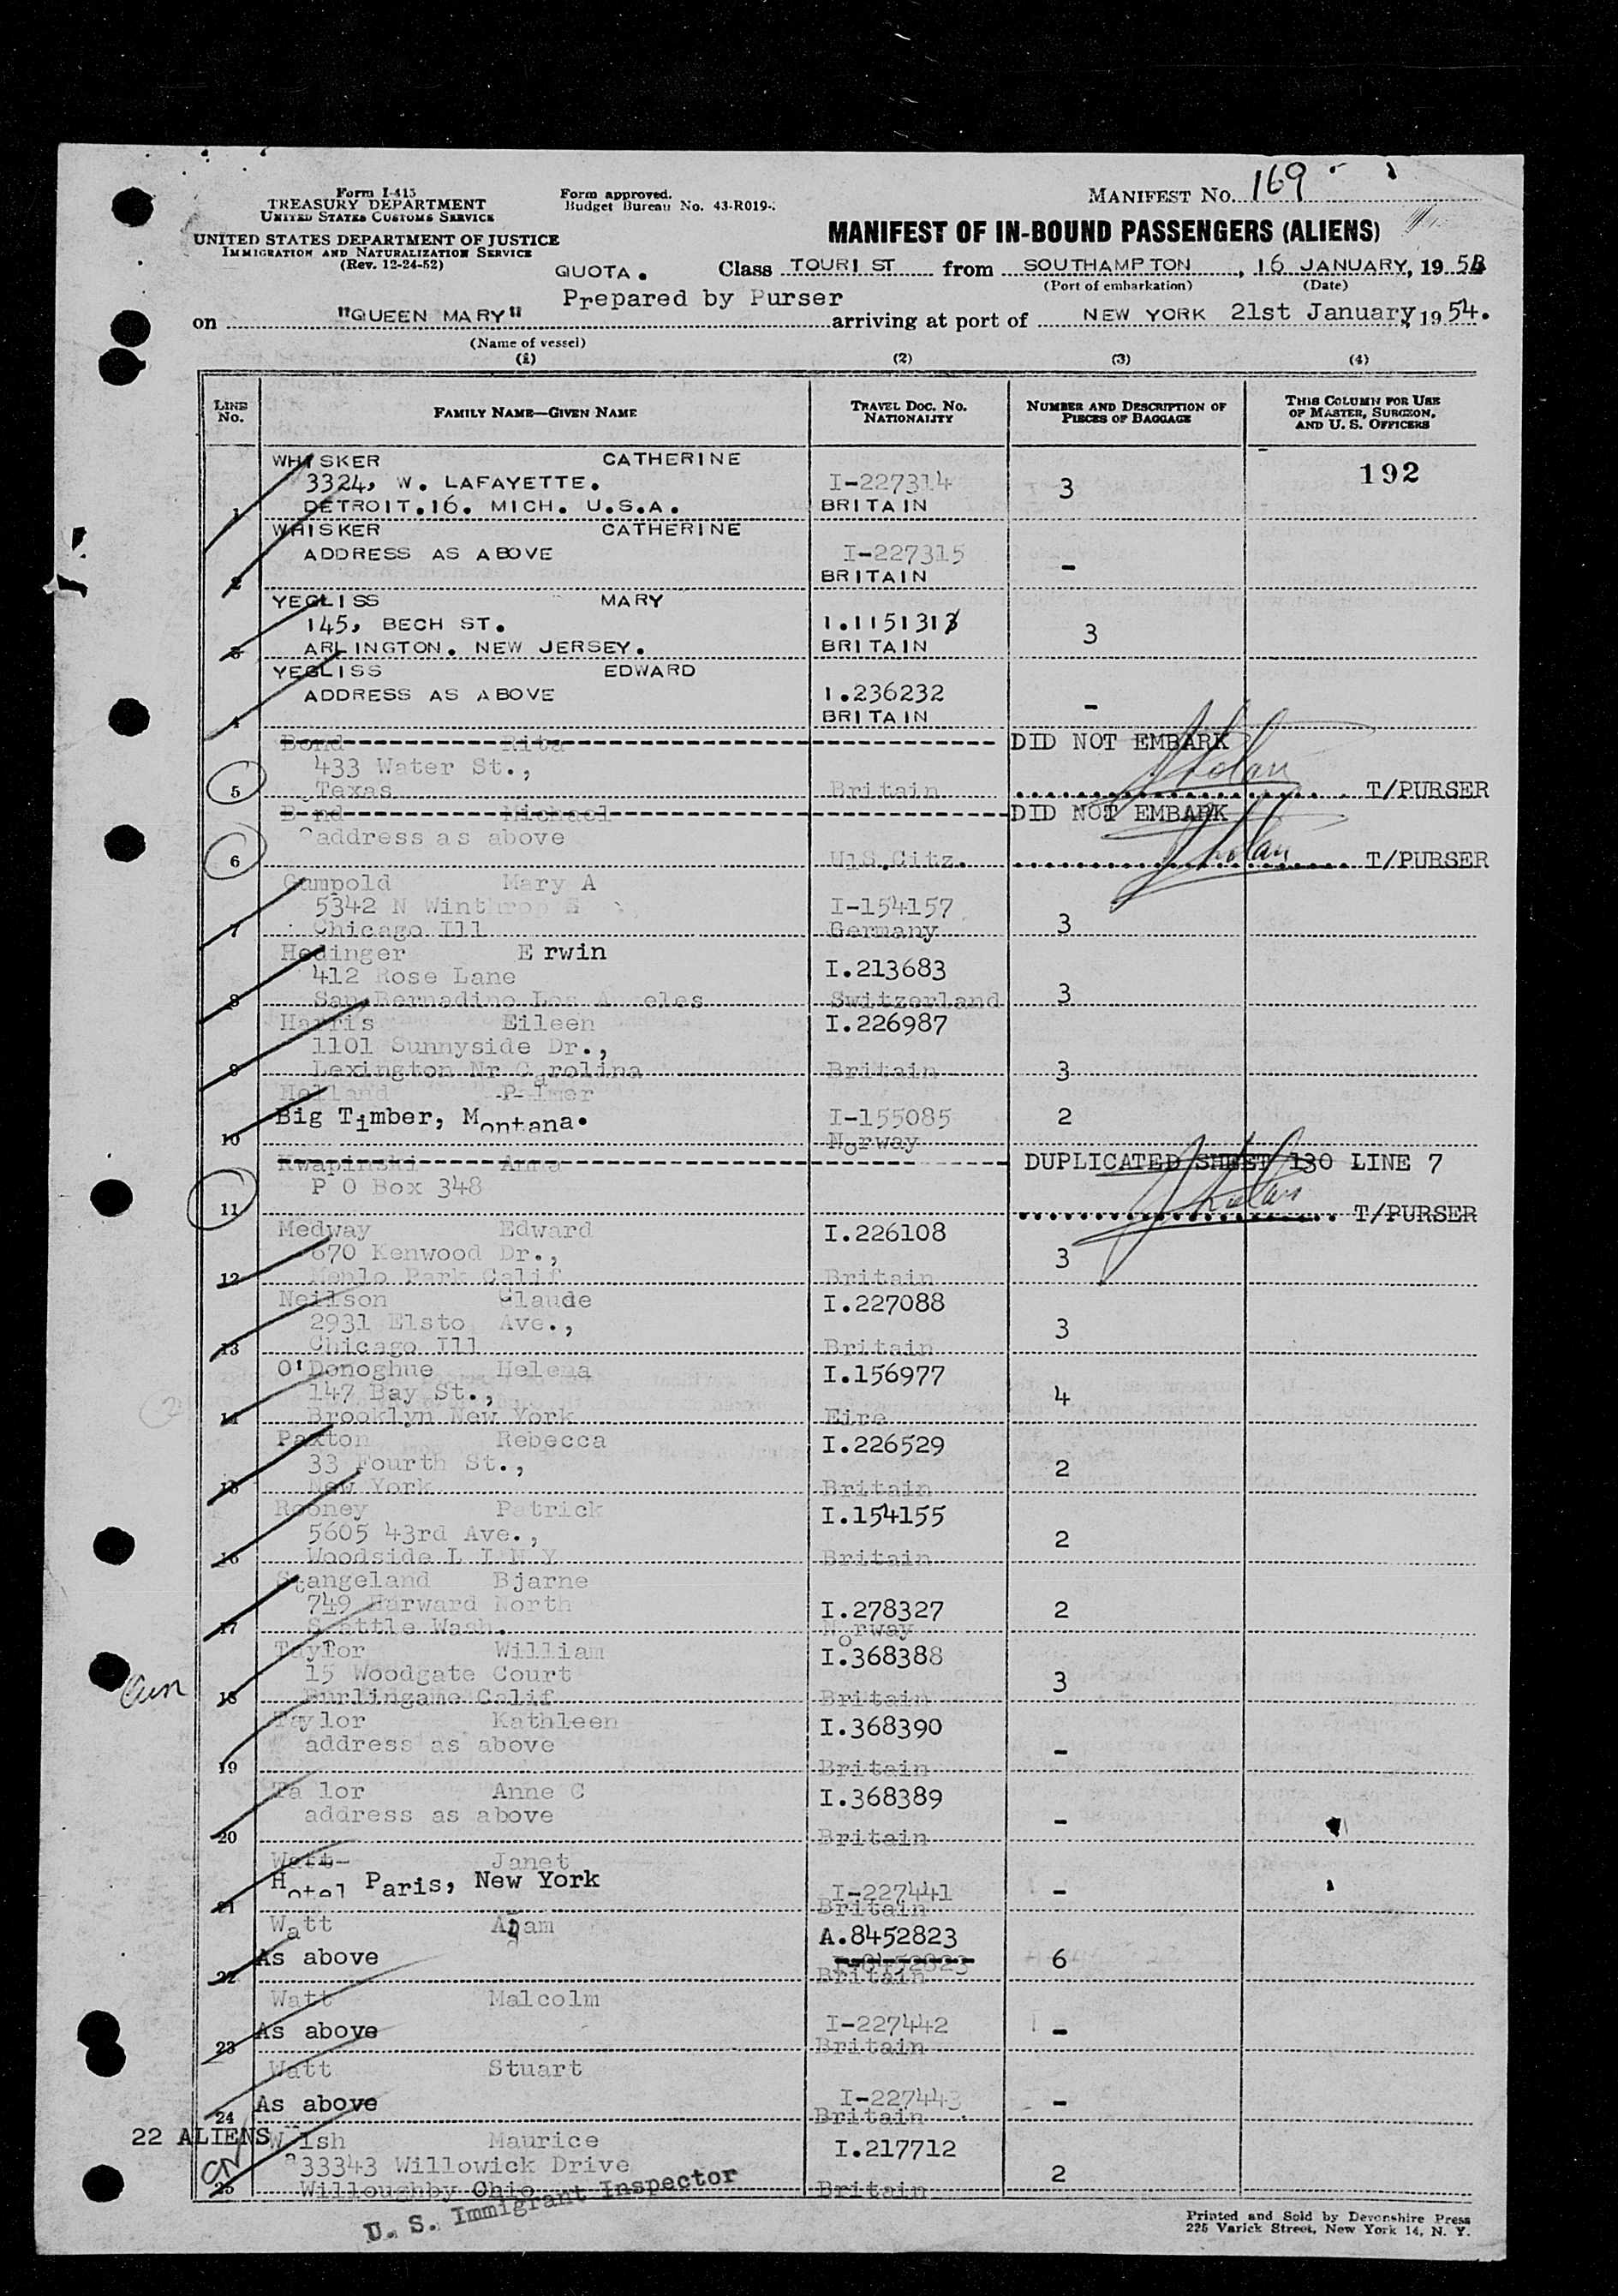 Form I-415
TREASURY DEPARTMENT
UNITED STATES CUSTOMS SERVICE
UNITED STATES DEPARTMENT OF JUSTICE
IMMIGRATION AND NATURALIZATION SERVICE
(Rev. 12-24-52)
Form approved.
Budget Bureau No. 43-R019-
MANIFEST NO. 169
MANIFEST OF IN-BOUND PASSENGERS (ALIENS)
QUOTA. Class TOURIST from SOUTHAMPTON, 16 JANUARY, 1954
(Port of embarkation) (Date)
Prepared by Purser
on "QUEEN MARY" arriving at port of NEW YORK 21st January, 1954.
(Name of vessel)
(1) (2) (3) (4)
LINE No. FAMILY NAME—GIVEN NAME TRAVEL DOC. NO. NATIONALITY NUMBER AND DESCRIPTION OF PIECES OF BAGGAGE THIS COLUMN FOR USE OF MASTER, SURGEON, AND U. S. OFFICERS
WHISKER CATHERINE 192
3324, W. LAFAYETTE. I-227314 3
1 DETROIT.16. MICH. U.S.A. BRITAIN
WHISKER CATHERINE
ADDRESS AS ABOVE I-227315 -
2 BRITAIN
YEGLISS MARY
145, BECH ST. 1.115131 3
3 ARLINGTON. NEW JERSEY. BRITAIN
YEGLISS EDWARD
ADDRESS AS ABOVE 1.236232 -
4 BRITAIN
Bond Rita DID NOT EMBARK
433 Water St.,
5 Texas Britain T/PURSER
Bond Michael DID NOT EMBARK
address as above
6 U.S.Citz. T/PURSER
Gumpold Mary A
5342 N Winthrop I-154157
7 Chicago Ill Germany 3
Hedinger Erwin
412 Rose Lane I.213683
8 San Bernadino Los Angeles Switzerland 3
Harris Eileen I.226987
1101 Sunnyside Dr.,
9 Lexington Nr Carolina Britain 3
Holland Palmer
Big Timber, Montana. I-155085 2
10 Norway
Kwapinski Anna DUPLICATED SHEET 130 LINE 7
P O Box 348
11 T/PURSER
Medway Edward I.226108
670 Kenwood Dr., 3
12 Menlo Park Calif Britain
Neilson Claude I.227088
2931 Elsto Ave., 3
13 Chicago Ill Britain
O'Donoghue Helena I.156977
147 Bay St., 4
14 Brooklyn New York Eire
Paxton Rebecca I.226529
33 Fourth St., 2
15 New York Britain
Rooney Patrick I.154155
5605 43rd Ave., 2
16 Woodside L I N Y Britain
Stangeland Bjarne
749 Harward North I.278327 2
17 Seattle Wash. Norway
Taylor William I.368388
15 Woodgate Court 3
18 Burlingame Calif Britain
Taylor Kathleen I.368390
address as above -
19 Britain
Ta lor Anne C I.368389
address as above -
20 Britain
Watt Janet
Hotel Paris, New York I-227441 -
21 Britain
Watt Adam A.8452823
As above I-8452823 6
22 Britain
Watt Malcolm
As above I-227442 -
23 Britain
Watt Stuart
As above I-227443 -
24 Britain
22 ALIENS
W lsh Maurice I.217712
33343 Willowick Drive 2
25 Willoughby Ohio Britain
U. S. Immigrant Inspector
Printed and Sold by Devonshire Press
225 Varick Street, New York 14, N. Y.